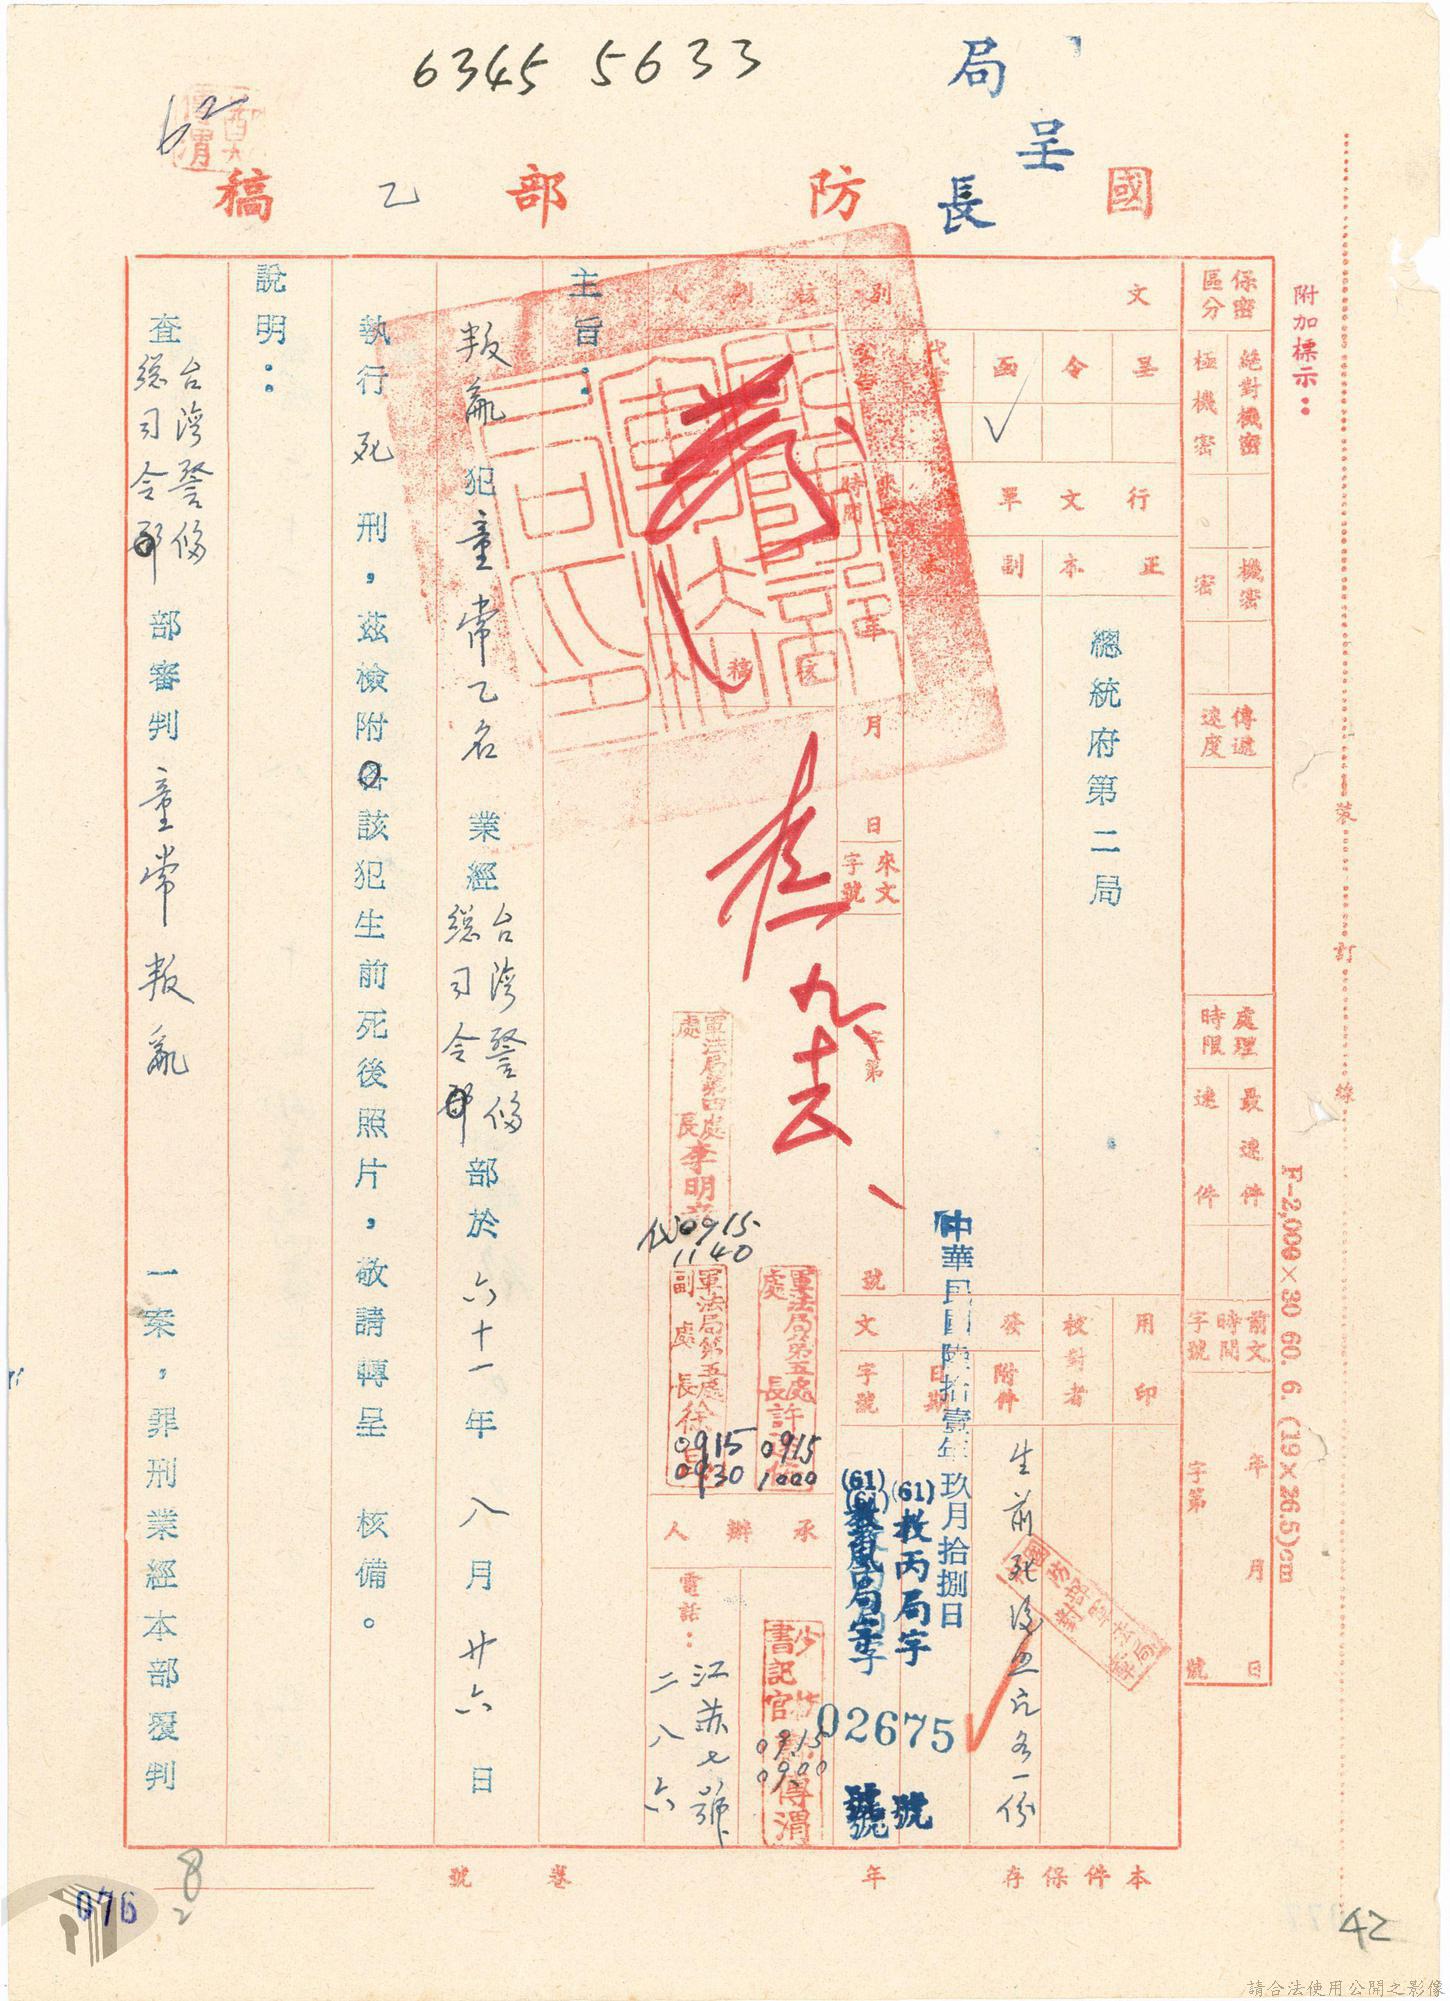 6345 5633
局長
呈
62
國防部稿
乙
附加標示：
裝
訂
線
F-2,000×30 60. 6. (19×26.5)cm
保密區分
絕對機密
極機密
機密
密
傳遞速度
處理時限
最速件
速件
前文時間字號
年月日
字第號
文別
呈
令
函
代電
✓
行文單位
正本
副本
總統府第二局
來文時間
年月日
來文字號
字第號
用印
校對者
發文
附件
日期
字號
生前死後照片各一份
中華民國陸拾壹年玖月拾捌日
(61)
(61)
局字
02675
號
核判人
核稿人
九、十六、
軍法局第四處處長李明
代0915
1140
軍法局第五處處長許
0915
1000
軍法局第五處副處長徐
0915
0930
承辦人
書記官
傅渭
0915
0900
電話：
江蘇七號
二八六
主旨：
叛亂犯童常乙名業經台灣警備總司令部於六十一年八月廿六日
執行死刑，茲檢附該犯生前死後照片，敬請轉呈 核備。
說明：
查台灣警備總司令部審判童常叛亂一案，罪刑業經本部覆判
本件保存年
卷號
8
2
076
42
請合法使用公開之影像